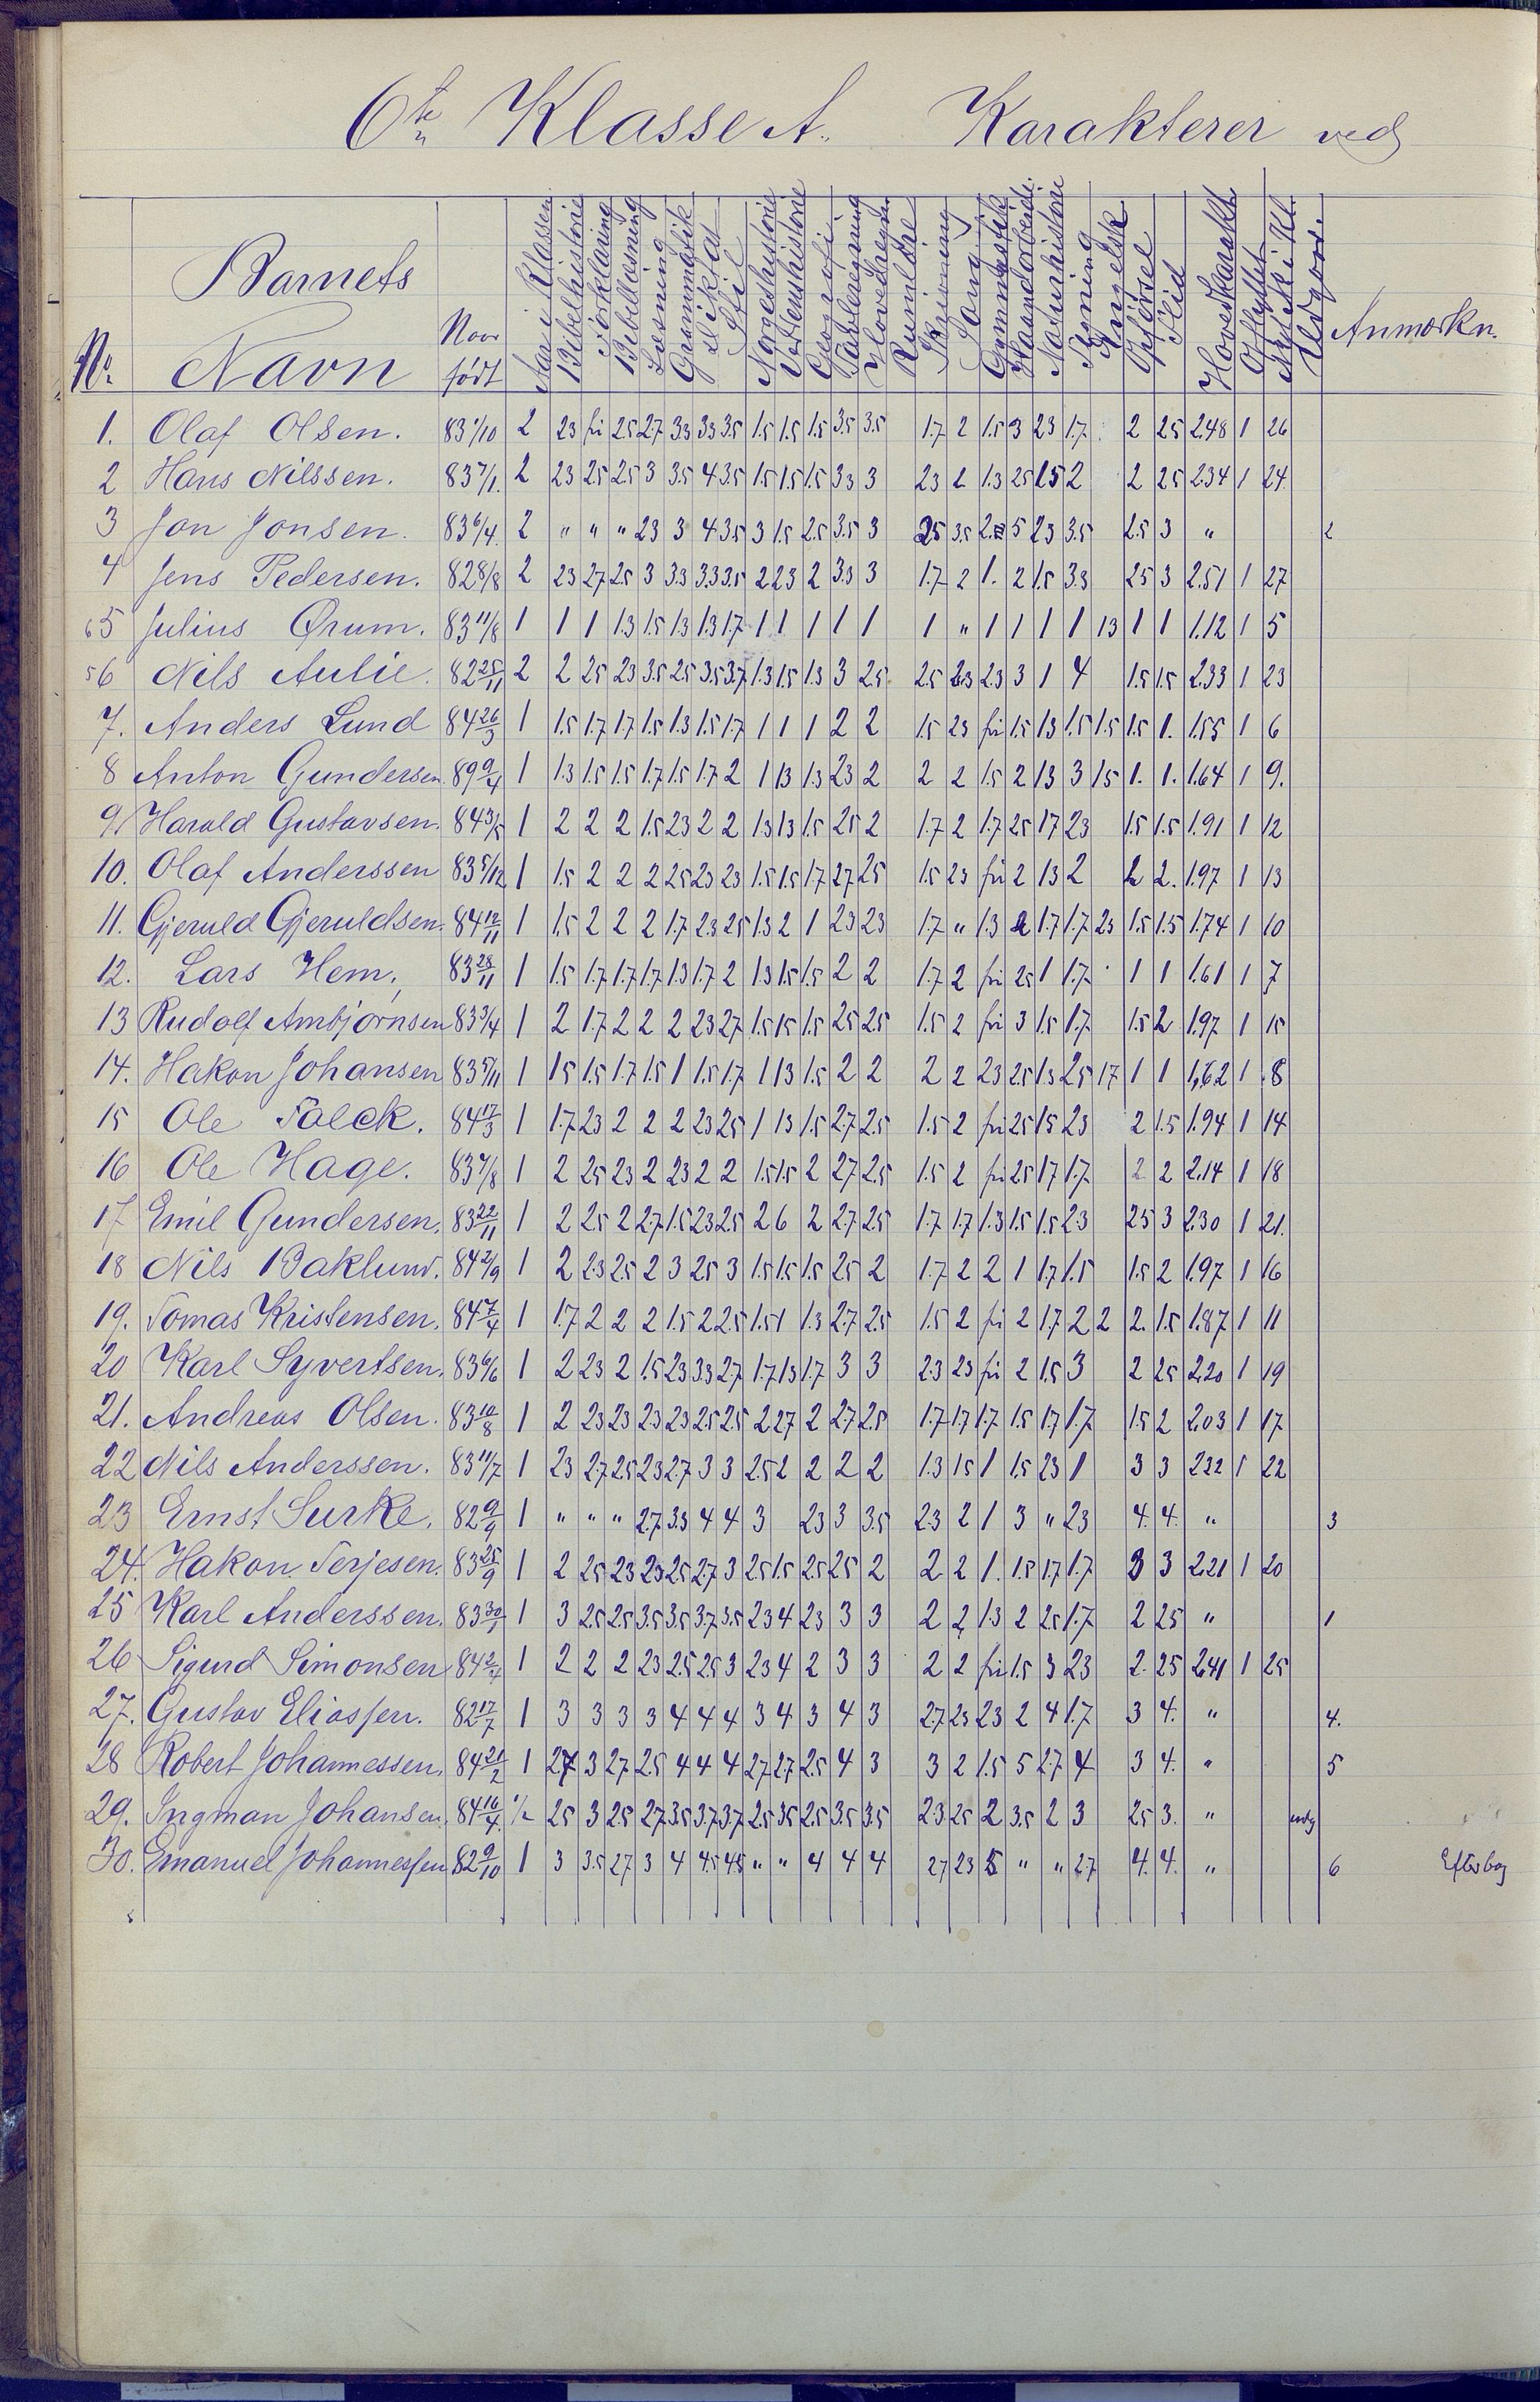 6te Klasse A. Karakterer ved
No. Barnets Navn Naar født Aar i Klassen Bibelhistorie Forklaring Bibellæsning Læsning Grammatik Diktat Stil Norgeshistorie Verdenshistorie Geografi Tavleregning Hovedregn. Rumlære Skrivning Sang Gymnastik Haandarbeide Naturhistorie Tegning Engelsk Opførsel Flid Hovedkarakt. Opflyttet Anmærkn.
1. Olaf Olsen. 83 1/10 2 23 fri 25 27 33 33 35 1.5 1.5 1.5 3.5 3.5 1.7 2 1.5 3 23 1.7 2 25 2.48 1 26
2 Hans Nilssen. 83 7/1. 2 23 25 25 3 3.5 4 35 1.5 1.5 1.5 33 3 23 2 1.3 25 15 2 2 25 2.34 1 24.
3 Jon Jonsen. 83 6/4. 2 " " " 23 3 4 35 3 1.5 2.5 3.5 3 25 3.5 5 23 3.5 2.5 3 " 2
4 Jens Pedersen. 82 8/8 2 23 27 25 3 33 33 35 2 23 2 33 3 1.7 2 1. 2 1.5 33 25 3 2.51 1 27
65 Julius Ørum. 83 11/8 1 1 1 1.3 1.5 13 13 1.7 1 1 1 1 1 1 " 1 1 1 1 13 1 1 1.12 1 5
56 Nils Aulie. 82 25/11 2 2 25 23 3.5 25 3.5 3.7 1.3 1.5 1.3 3 25 2.5 23 23 3 1 4 1.5 1.5 2.33 1 23
7. Anders Lund 84 26/3 1 1.5 1.7 17 1.5 1.3 1.5 1.7 1 1 1 2 2 1.5 23 fri 1.5 13 1.5 1.5 1.5 1. 1.55 1 6
8 Anton Gundersen. 89 9/4 1 1.3 1.5 1.5 1.7 1.5 1.7 2 1 13 1.3 23 2 2 2 1.5 2 13 3 15 1. 1. 1.64 1 9.
9 Harald Gustavsen. 84 3/5 1 2 2 2 1.5 23 2 2 13 13 1.5 25 2 1.7 2 1.7 25 17 23 1.5 1.5 1.91 1 12
10. Olaf Anderssen 83 5/12 1 1.5 2 2 2 25 23 23 1.5 1.5 17 27 25 1.5 23 fri 2 13 2 2 2. 1.97 1 13
11. Gjeruld Gjeruldsen. 84 12/11 1 1.5 2 2 2 1.7 2.3 25 1.3 2 1 23 23 1.7 " 1.3 2 1.7 1.7 23 1.5 1.5 1.74 1 10
12. Lars Hem, 83 28/11 1 1.5 1.7 1.7 1.7 1.3 1.7 2 1.3 1.5 1.5 2 2 1.7 2 fri 25 1 1.7 1 1 1.61 1 7
13 Rudolf Ambjørnsen 83 3/4 1 2 1.7 2 2 2 23 27 1.5 15 1.5 25 25 1.5 2 fri 3 1.5 1.7 1.5 2 1.97 1 15
14. Hakon Johansen 83 5/11 1 15 1.5 1.7 1.5 1 1.5 1.7 1 13 1.5 2 2 2 2 23 25 13 25 17 1 1 1,62 1 8
15 Ole Falck. 84 17/3 1 1.7 23 2 2 2 23 25 1 13 1.5 2.7 2.5 1.5 2 fri 25 15 23 2 1.5 1.94 1 14
16 Ole Hage. 83 7/8 1 2 25 23 2 23 2 2 1.5 1.5 2 27 25 1.5 2 fri 25 17 1.7 2 2 2.14 1 18
17 Emil Gundersen, 83 22/11 1 2 25 2 27 1.5 23 25 2 6 2 2.7 2.5 1.7 1.7 1.3 1.5 1.5 23 25 3 2.30 1 21.
18 Nils Baklund. 84 2/9 1 2 23 25 2 3 25 3 1.5 1.5 1.5 25 2 1.7 2 2 1 1.7 1.5 1.5 2 1.97 1 16
19. Tomas Kristensen. 84 7/4 1 1.7 2 2 2 1.5 2 25 1.5 1 1.3 2.7 2.5 1.5 2 fri 2 1.7 2 2 2. 1.5 1.87 1 11
20 Karl Syvertsen. 83 6/6 1 2 23 2 1.5 23 33 27 1.7 13 1.7 3 3 23 23 fri 2 1.5 3 2 25 2.20 1 19
21. Andreas Olsen. 83 10/8 1 2 23 23 23 23 25 25 2 27 2 27 25 1.7 1.7 1.7 1.5 1.7 1.7 1.5 2 2.03 1 17
22 Nils Anderssen. 83 11/7 1 23 2.7 25 23 27 3 3 25 2 2 2 2 1.3 15 1 1.5 23 1 3 3 2.22 1 22
23 Ernst Surke. 82 9/9 1 " " " 27 33 4 4 3 23 3 3.5 23 2 1 3 " 23 4. 4. " 3
24. Hakon Terjesen. 83 25/9 1 2 25 23 23 25 27 3 25 1.5 25 25 2 2 2 1. 1.5 1.7 1.7 3 3 2.21 1 20
25 Karl Anderssen. 83 30/1 1 3 25 25 3.5 3.5 3.7 3.5 23 4 23 3 3 2 2 13 2 25 1.7 2 25 " 1
26 Sigurd Simonsen 84 2/4 1 2 2 2 23 25 25 3 23 4 2 3 3 2 2 fri 1.5 3 23 2. 25 2.41 1 25
27. Gustav Eliassen. 82 17/7 1 3 3 3 3 4 4 4 3 4 3 4 3 27 23 23 2 4 1.7 3 4. " 4.
28 Robert Johannessen. 84 21/2 1 27 3 27 25 4 4 4 27 27 25 4 3 3 2 1.5 5 27 4 3 4. " 5
29. Ingman Johansen. 84 16/4. 1/2 25 3 25 27 3.5 3.7 3.7 25 35 25 3.5 3.5 23 25 2 3.5 2 3 25 3. " udg
30. Emanuel Johannessen 82 9/10 1 3 3.5 27 3 4 4.5 45 " " 4 4 4 27 23 5 " " 27 4. 4. " 6